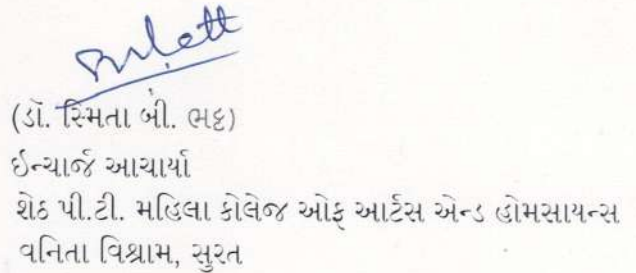 (ડૉ. સ્મિતા બી. ભટ્ટ)
ઈન્ચાર્જ આચાર્યા
શેઠ પી.ટી. મહિલા કોલેજ ઓફ આર્ટસ એન્ડ હોમસાયન્સ
વનિતા વિશ્રામ, સુરત